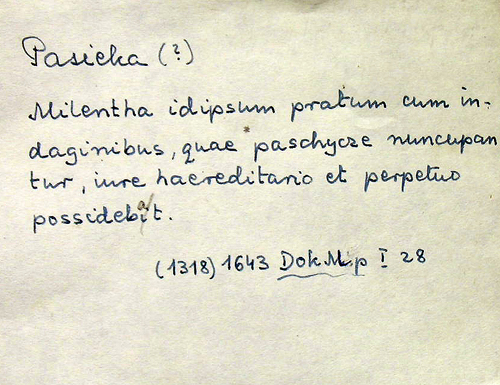 Pasieka (?)
Milentha idipsum pratum cum in-
daginibus, quae paschycze nuncupan
tur, iure haereditario et perpetuo
possidebit.
(1318) 1643 DokMp I 28